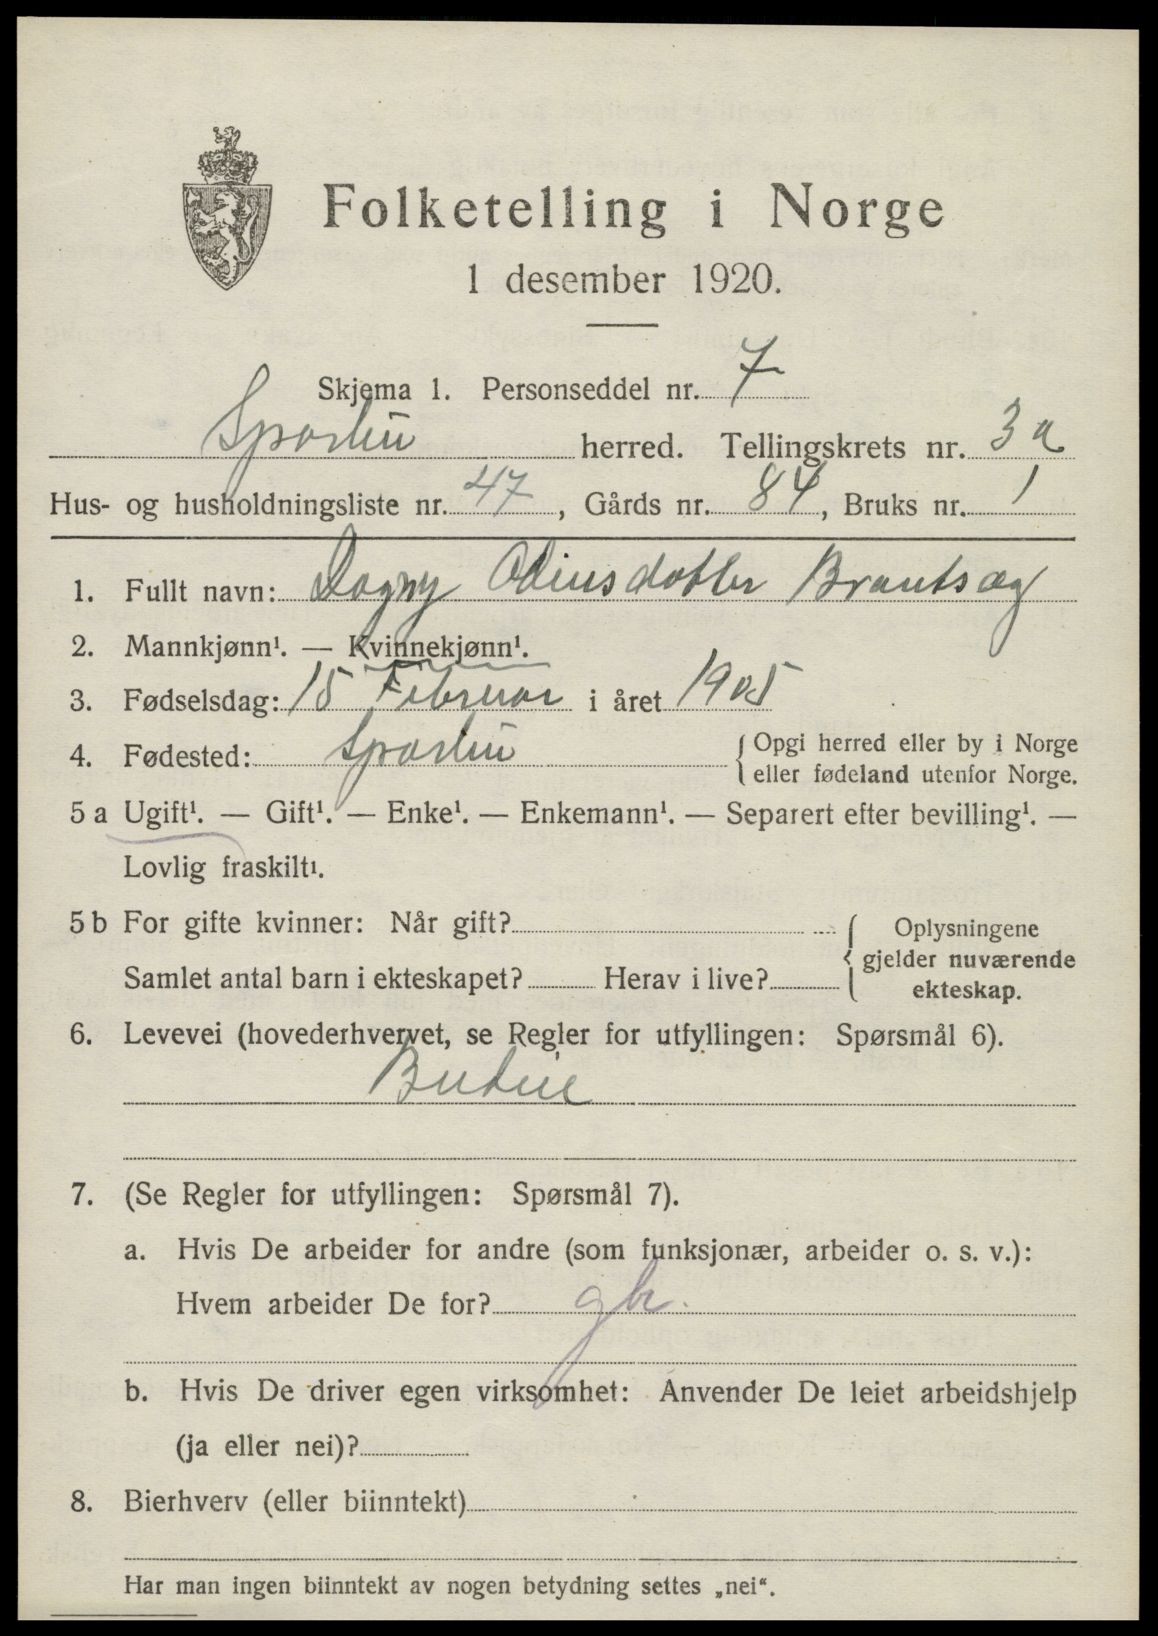 Folketelling i Norge
1 desember 1920.
Skjema 1. Personseddel nr. 7
Sparbu herred. Tellingskrets nr. 3 a
Hus- og husholdningsliste nr. 47, Gårds nr. 84, Bruks nr. 1
1. Fullt navn: Dagny Odinsdatter
2. Mannkjønn¹. — Kvinnekjønn¹.
3. Fødselsdag: 15 Februar i året 1905
4. Fødested: Sparbu { Opgi herred eller by i Norge
eller fødeland utenfor Norge.
5 a Ugift¹. — Gift¹. — Enke¹. — Enkemann¹. — Separert efter bevilling¹. —
Lovlig fraskilt¹.
5 b For gifte kvinner: Når gift? { Oplysningene
gjelder nuværende
Samlet antal barn i ekteskapet? Herav i live?
ekteskap.
6. Levevei (hovederhvervet, se Regler for utfyllingen: Spørsmål 6).
Budeie
7. (Se Regler for utfyllingen: Spørsmål 7).
a. Hvis De arbeider for andre (som funksjonær, arbeider o. s. v.):
Hvem arbeider De for? gbr.
b. Hvis De driver egen virksomhet: Anvender De leiet arbeidshjelp
(ja eller nei)?
8. Bierhverv (eller biinntekt)
Har man ingen biinntekt av nogen betydning settes „nei“.